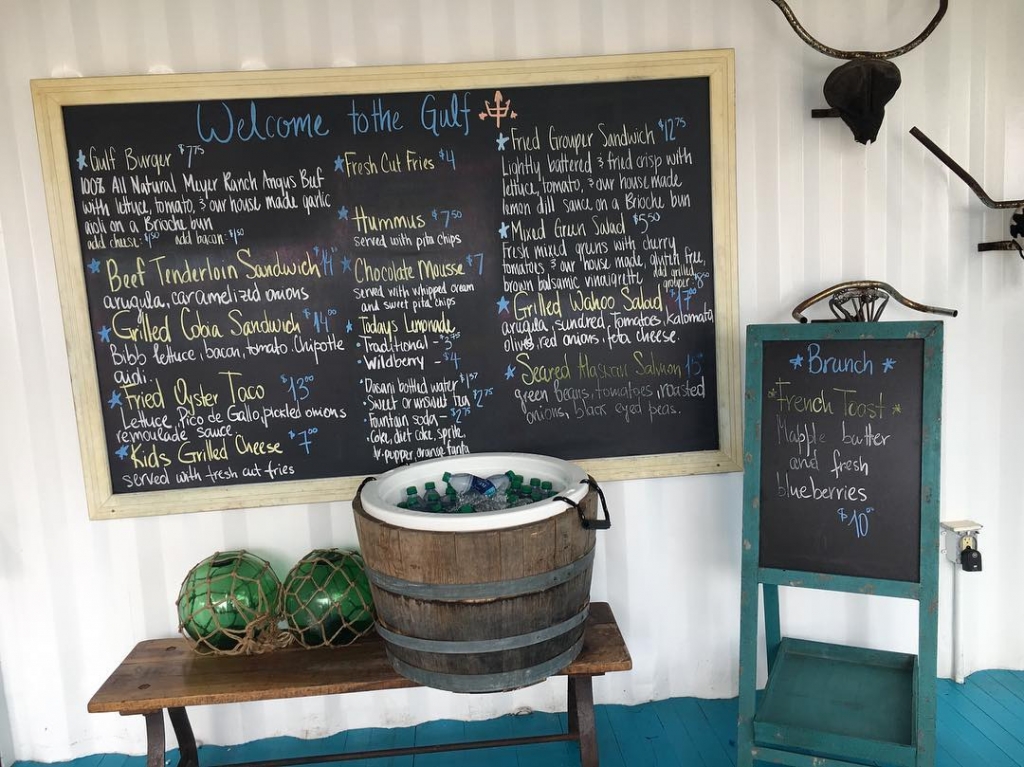 Welcome to the Gulf
Gulf Burger $7.75
100% All Natural Meyer Ranch Angus Beef
with lettuce, tomato, & our house made garlic
aioli on a Brioche bun
add cheese: $1.50 add bacon: $1.50
Beef Tenderloin Sandwich
arugula, caramelized onions
Grilled Cobia Sandwich $14.00
Bibb lettuce, bacon, tomato. Chipotle
aioli.
Fried Oyster Taco $13.00
Lettuce, Pico de Gallo, pickled onions
remoulade sauce
Kids Grilled Cheese $7.00
served with fresh cut fries
Fresh Cut Fries $4
Hummus $7.50
served with pita chips
Chocolate Mousse $7
served with whipped cream
and sweet pita chips
Today's Lemonade
Traditional -
Wildberry - $4
Dasani bottled water
Sweet or unsweet tea $2.75
fountain soda - $2.75
Coke, diet coke, sprite,
dr. pepper, orange fanta
Fried Grouper Sandwich $12.75
Lightly battered & fried crisp with
lettuce, tomato, & our house made
lemon dill sauce on a Brioche bun
Mixed Green Salad $5.50
Fresh mixed greens with cherry
tomatoes & our house made, gluten free,
brown balsamic vinaigrette add grilled
grouper:
Grilled Wahoo Salad $17.00
arugula, sundried Tomatoes, Kalamata
olives, red onions, feta cheese.
Seared Alaskan Salmon
green beans, tomatoes, roasted
onions, black eyed peas.
Brunch
French Toast
Mapple butter
and fresh
blueberries
$10.00